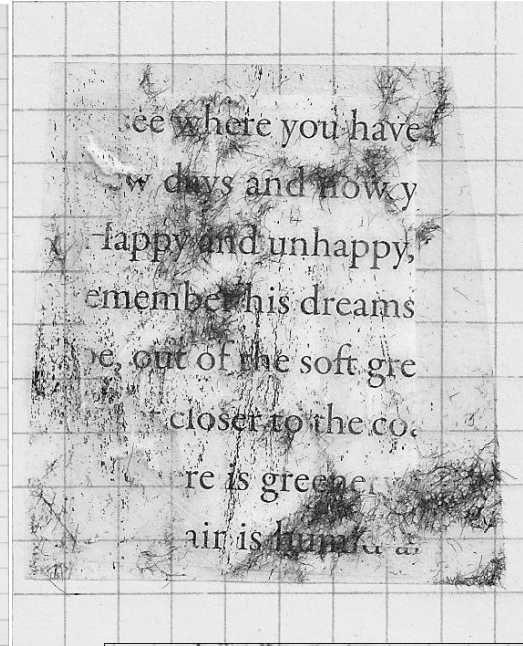 ee where you have
w days and now y
Happy and unhappy,
emember his dreams
e, out of the soft gre
closer to the co
re is greener
air is humid a